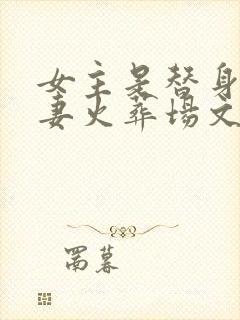 女主是替身
妻火葬场文
罱暮